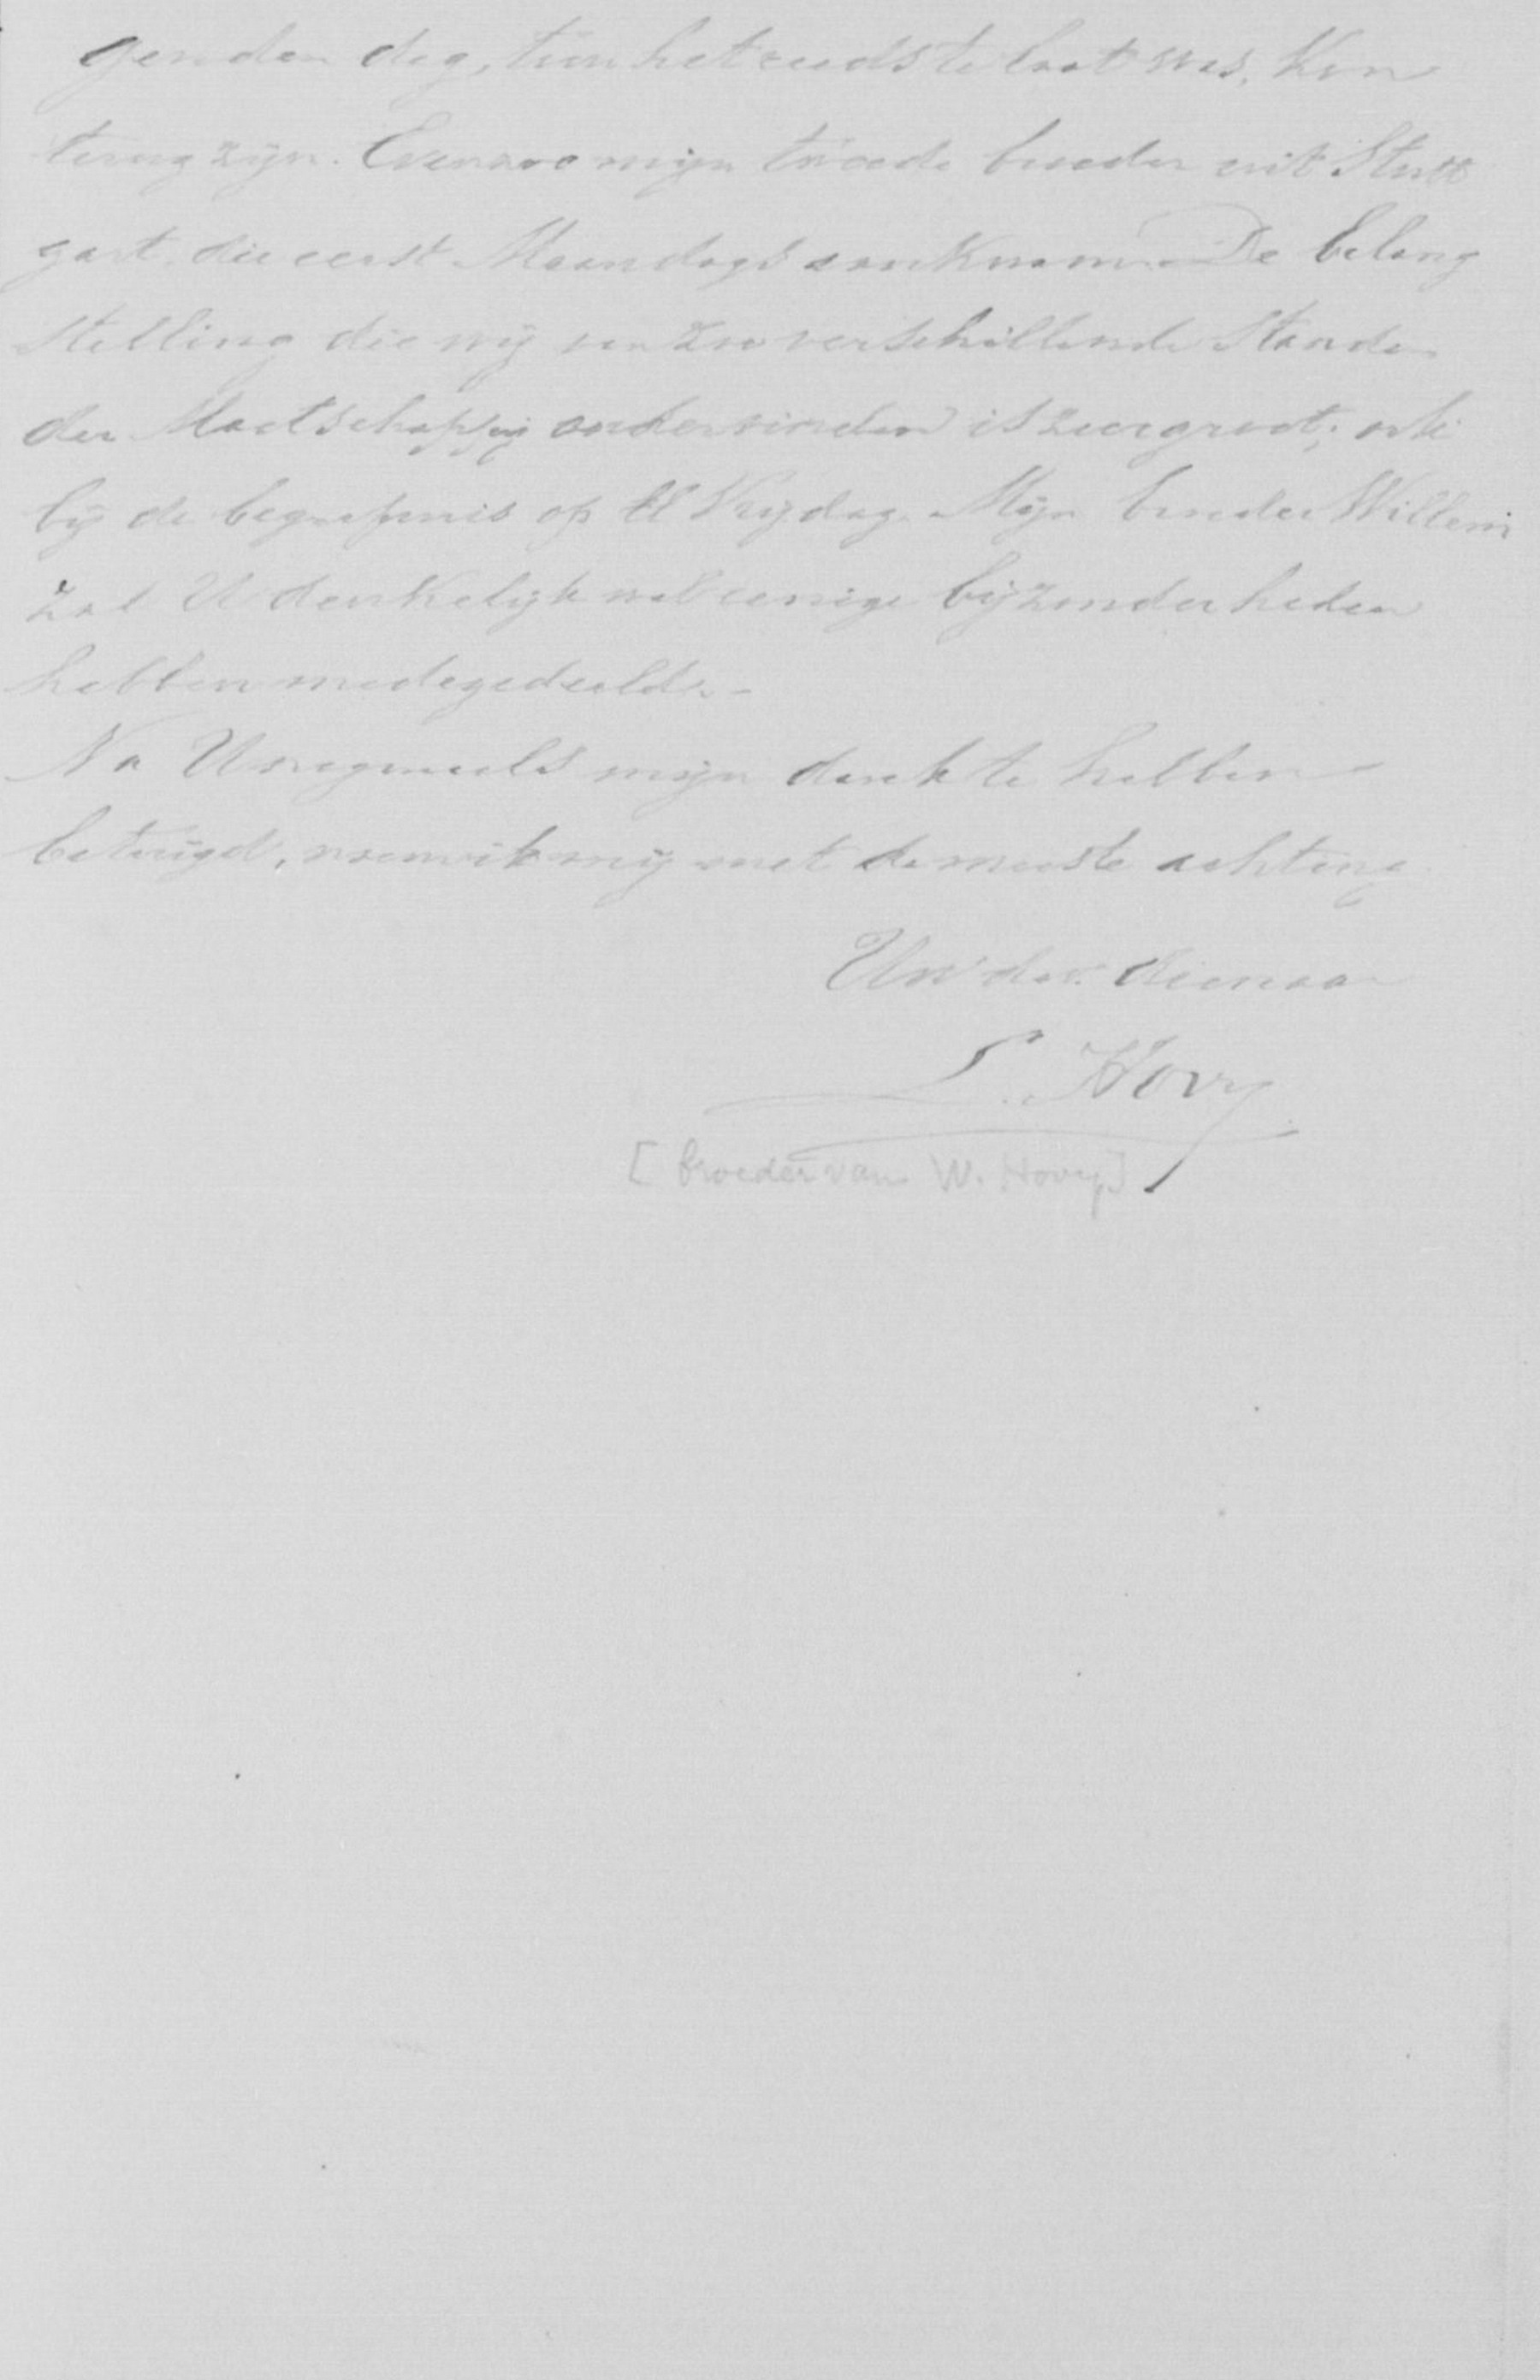 genden dag, toen het reeds te laat was, kon
terug zijn. Evenzoo mijn tweede broeder uit Stutt
gart, die eerst Maandags aankwam. De belang
stelling die wij van zoo verschillende Standen
der Maatschappij ondervinden is zeer groot; ook
bij de begrafenis op ll Vrijdag. Mijn broeder Willem
zal U denkelijk wel eenige bijzonderheden
hebben medegedeeld. -
Na U nogmaals mijn dank te hebben
betuigd, noem ik mij met de meeste achting
Uw dw. dienaar
L. Hovy
[broeder van W. Hovy]